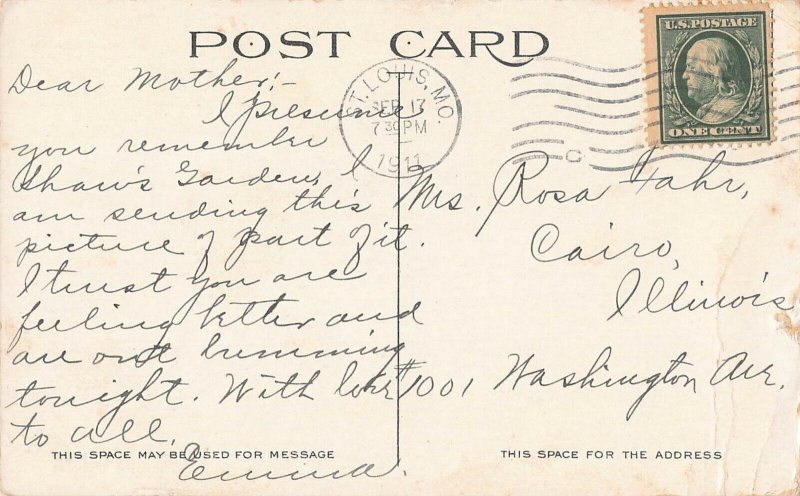 POST CARD
U.S. POSTAGE
ONE CENT
ST. LOUIS, MO.
SEP 17
7 30 PM
1911
C
Dear Mother:-
I presume
you remember
Shaw's Garden, I
am sending this
picture of part of it.
I trust you are
feeling better and
are out bumming
tonight. With love
to all,
Emma.
Mrs. Rosa Fahr,
Cairo,
Illinois
#1001 Washington Ave.
THIS SPACE MAY BE USED FOR MESSAGE
THIS SPACE FOR THE ADDRESS